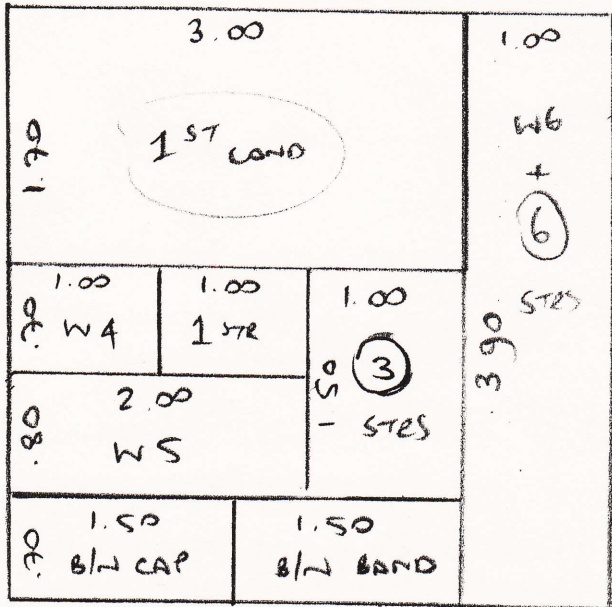 3.00
1.70
1ST LAND
1.00
W6
+
6
STRS
3.90
1.00
.70
W4
1.00
1 STR
1.00
1.50
3
STRS
2.00
.80
W5
1.50
.70
B/N CAP
1.50
B/N BAND